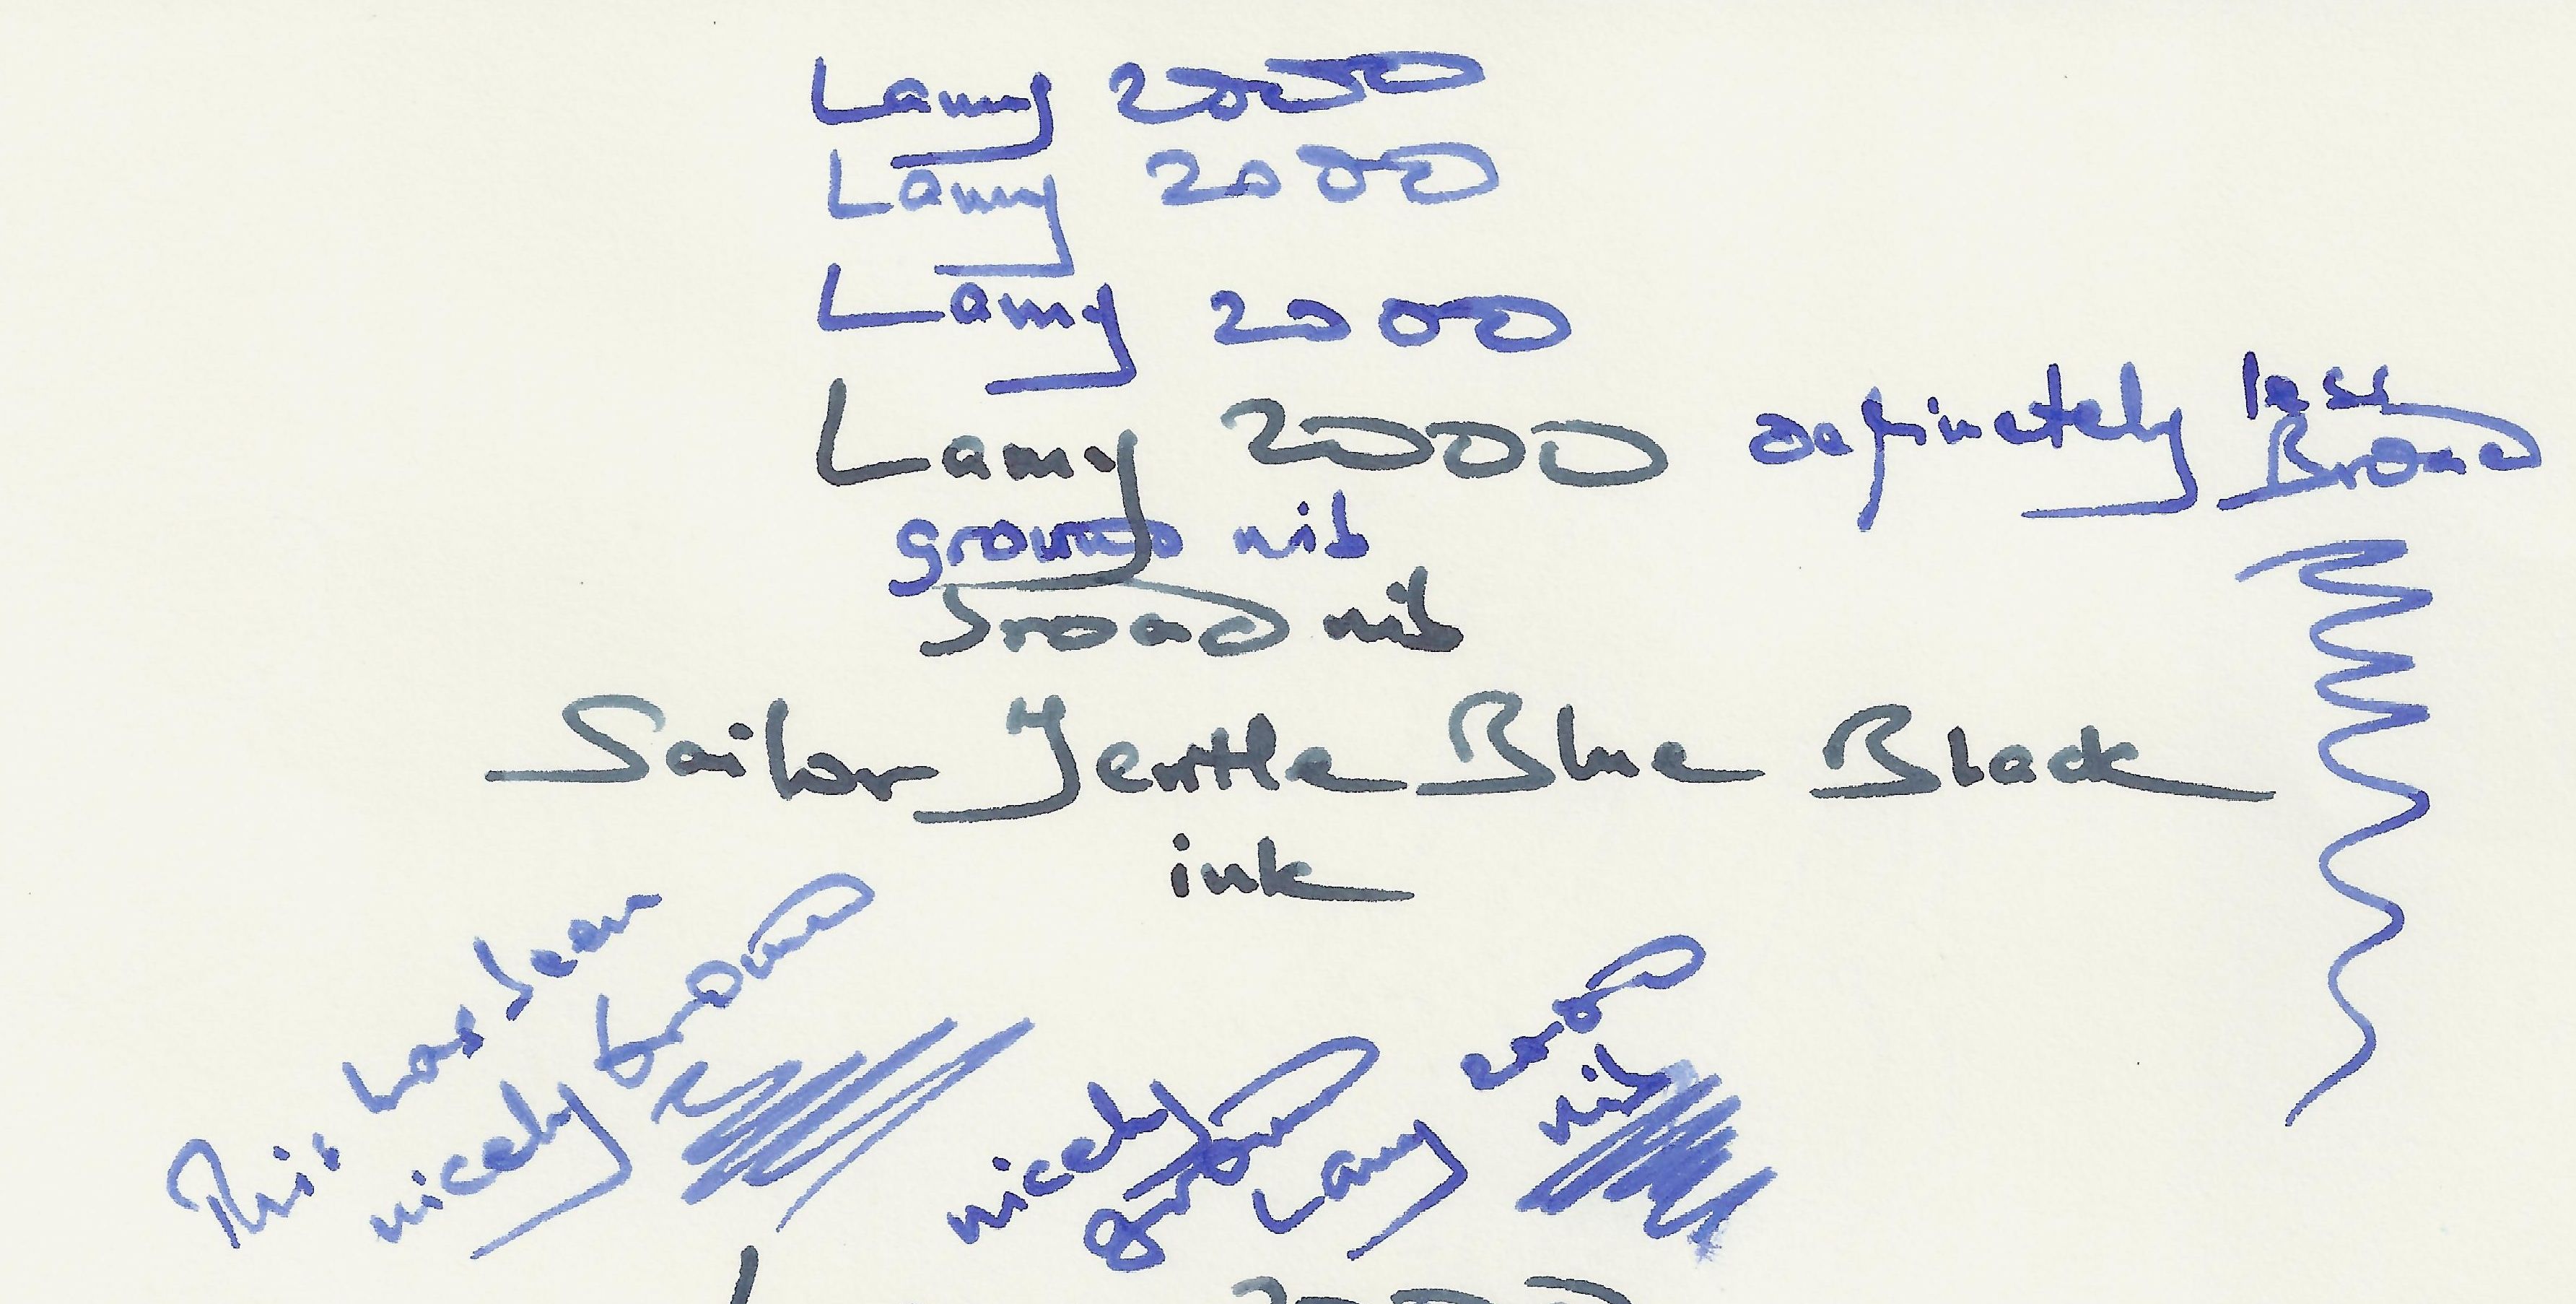 Lamy 2000
Lamy 2000
Lamy 2000
Lamy 2000 definetely less
Broad
ground nib
broad nib
Sailor Jentle Blue Black
ink
This has been
nicely ground
nicely
ground
Lamy
2000
nib